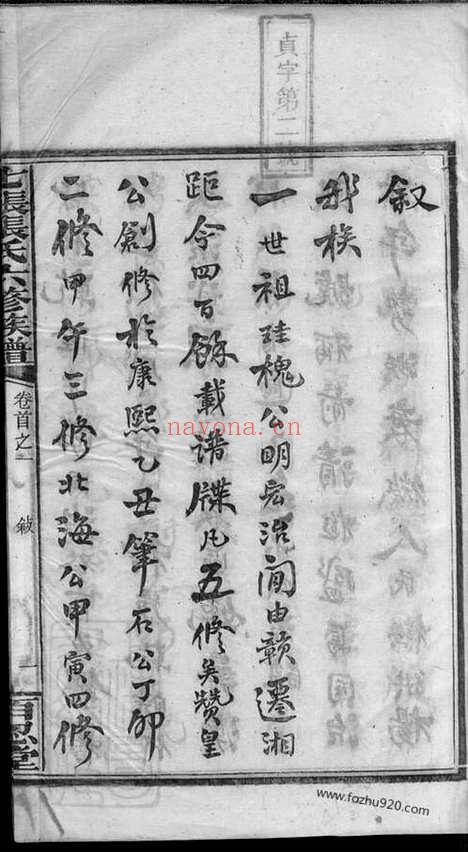 貞字第二號
叙
我族
一世祖珪槐公明宏治间由贛遷湘
距今四百餘載谱牒凡五修矣贊皇
公創修於康熙乙丑筆石公丁卯
二修甲午三修北海公甲寅四修
七張張氏六修族譜
卷首之一
敍
一
百忍堂
nayona.cn
www.fozhu920.com